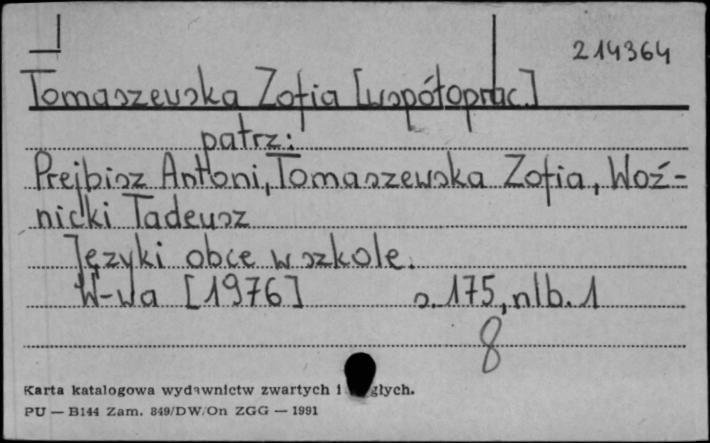 214364
Tomaszewska Zofia [współoprac.]
patrz:
Prejbisz Antoni, Tomaszewska Zofia, Woź-
nicki Tadeusz
Języki obce w szkole.
W-wa [1976] s. 175, nlb. 1
8
Karta katalogowa wydawnictw zwartych i
PU — B144 Zam. 849/DW/On ZGG — 1991